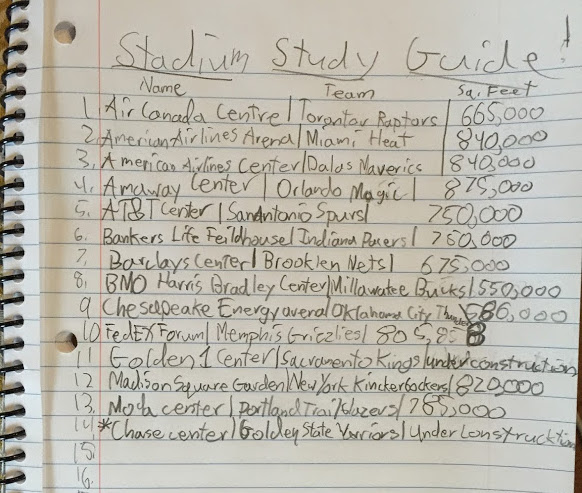 Stadium Study Guide!
Name Team Sq. Feet
1. Air Canada Centre | Torontor Raptors | 665,000
2. Amerian Airlines Arena | Miami Heat | 840,000
3. American Airlines Center | Dalas Maverics | 840,000
4. Amaway Center | Orlando Magic | 875,000
5. AT&T Center | San Antonio Spurs | 750,000
6. Bankers Life Feildhouse | Indiana Pacers | 750,000
7. Barclays Center | Brooklen Nets | 675,000
8. BMO Harris Bradley Center | Millawatee Bucks | 550,000
9 Chesapeake Energy averal Oklahoma City Thunder 586,000
10 FedEX Forum | Memphis Grizzlies | 805,85
11 Golden 1 Center | Sacramento Kings | under construction
12 Madison Square Garden | New York Kinckerbockers | 820,000
13. Moda center | Portland Trail blazers | 785,000
14 *Chase center | Golden State Warriors | Under Construcktion
15.
16.